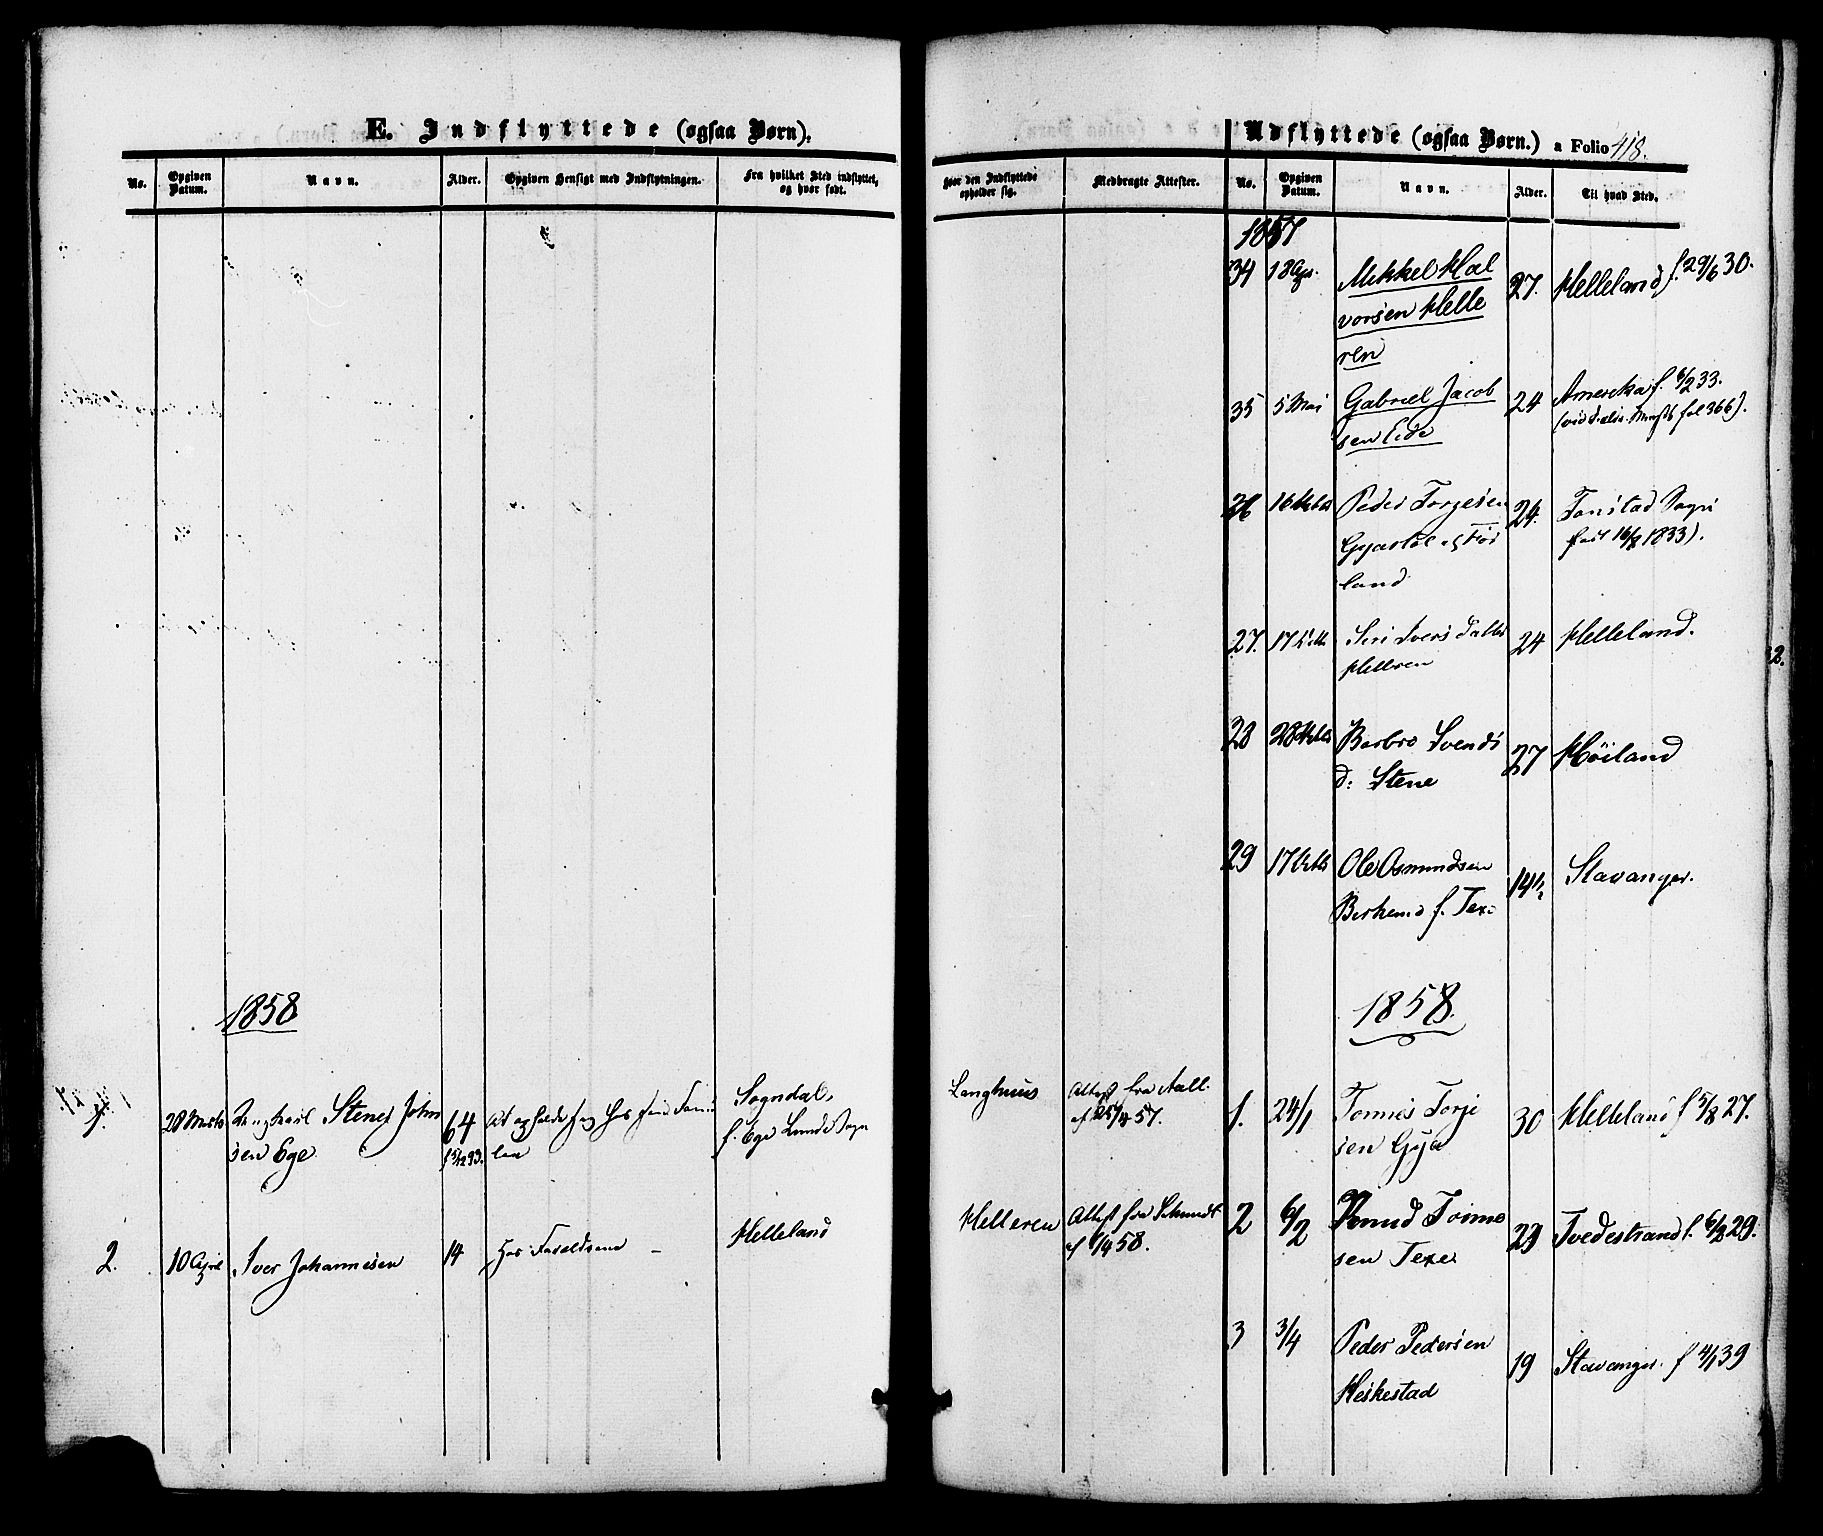 E. Indflyttede (ogsaa Børn).
No.
Opgiven Datum.
Navn.
Alder.
Opgiven Hensigt med Indflytningen.
Fra hvilket Sted indflyttet, og hvor født.
1858
1.
28 Marts
Stener John
sen Ege
64
At opholde sig hos
Sogndal,
f. Ege Lunde Sogn
2.
10 April
Iver Johannesen
14
Hos Forældrene
Helleland
Udflyttede (ogsaa Børn.) a Folio 418.
Hvor den Indflyttede opholder sig.
Medbragte Attester.
No.
Opgiven Datum.
Navn.
Alder.
Til hvad Sted.
1857
34
18 Apr.
Mikkel Hal
vorsen Helle
ren
27.
Helleland f. 29/6 30.
35
5 Mai
Gabriel Jacob
sen Eide
24
Amerika f. 6/2 33.
fol 366).
26
16 Octb
Peder Torgesen
Gyastøl og Før
land
24.
Tonstad Sogn
født 16/8 1833).
27.
17 Octb
Siri Ivers Datter
Helleren
24
Helleland.
28
28 Octb
Barbro Svends
d: Stene
27
Höiland
29
17 Octb
Ole Osmundsen
f. Texe
14 1/2
Stavanger.
1858.
Langhuus
Attest fra Aall
af 25/4 57.
1.
24/1
Tønnes Torje
sen Gya
30
Helleland f 5/8 27.
Helleren
Attest fra Schmidt
af 6/4 58.
2
6/2
Knud Tønne
sen Texe
29
Tvedestrand f. 6/8 29.
3
3/4
Peder Pedersen
Heskestad
19
Stavanger. f 4/1 39